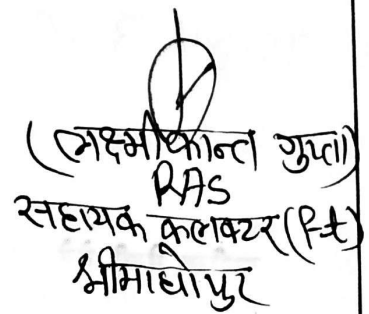 (लक्ष्मीकान्त गुप्ता)
RAS
सहायक कलक्टर (F-t)
श्रीमाधोपुर